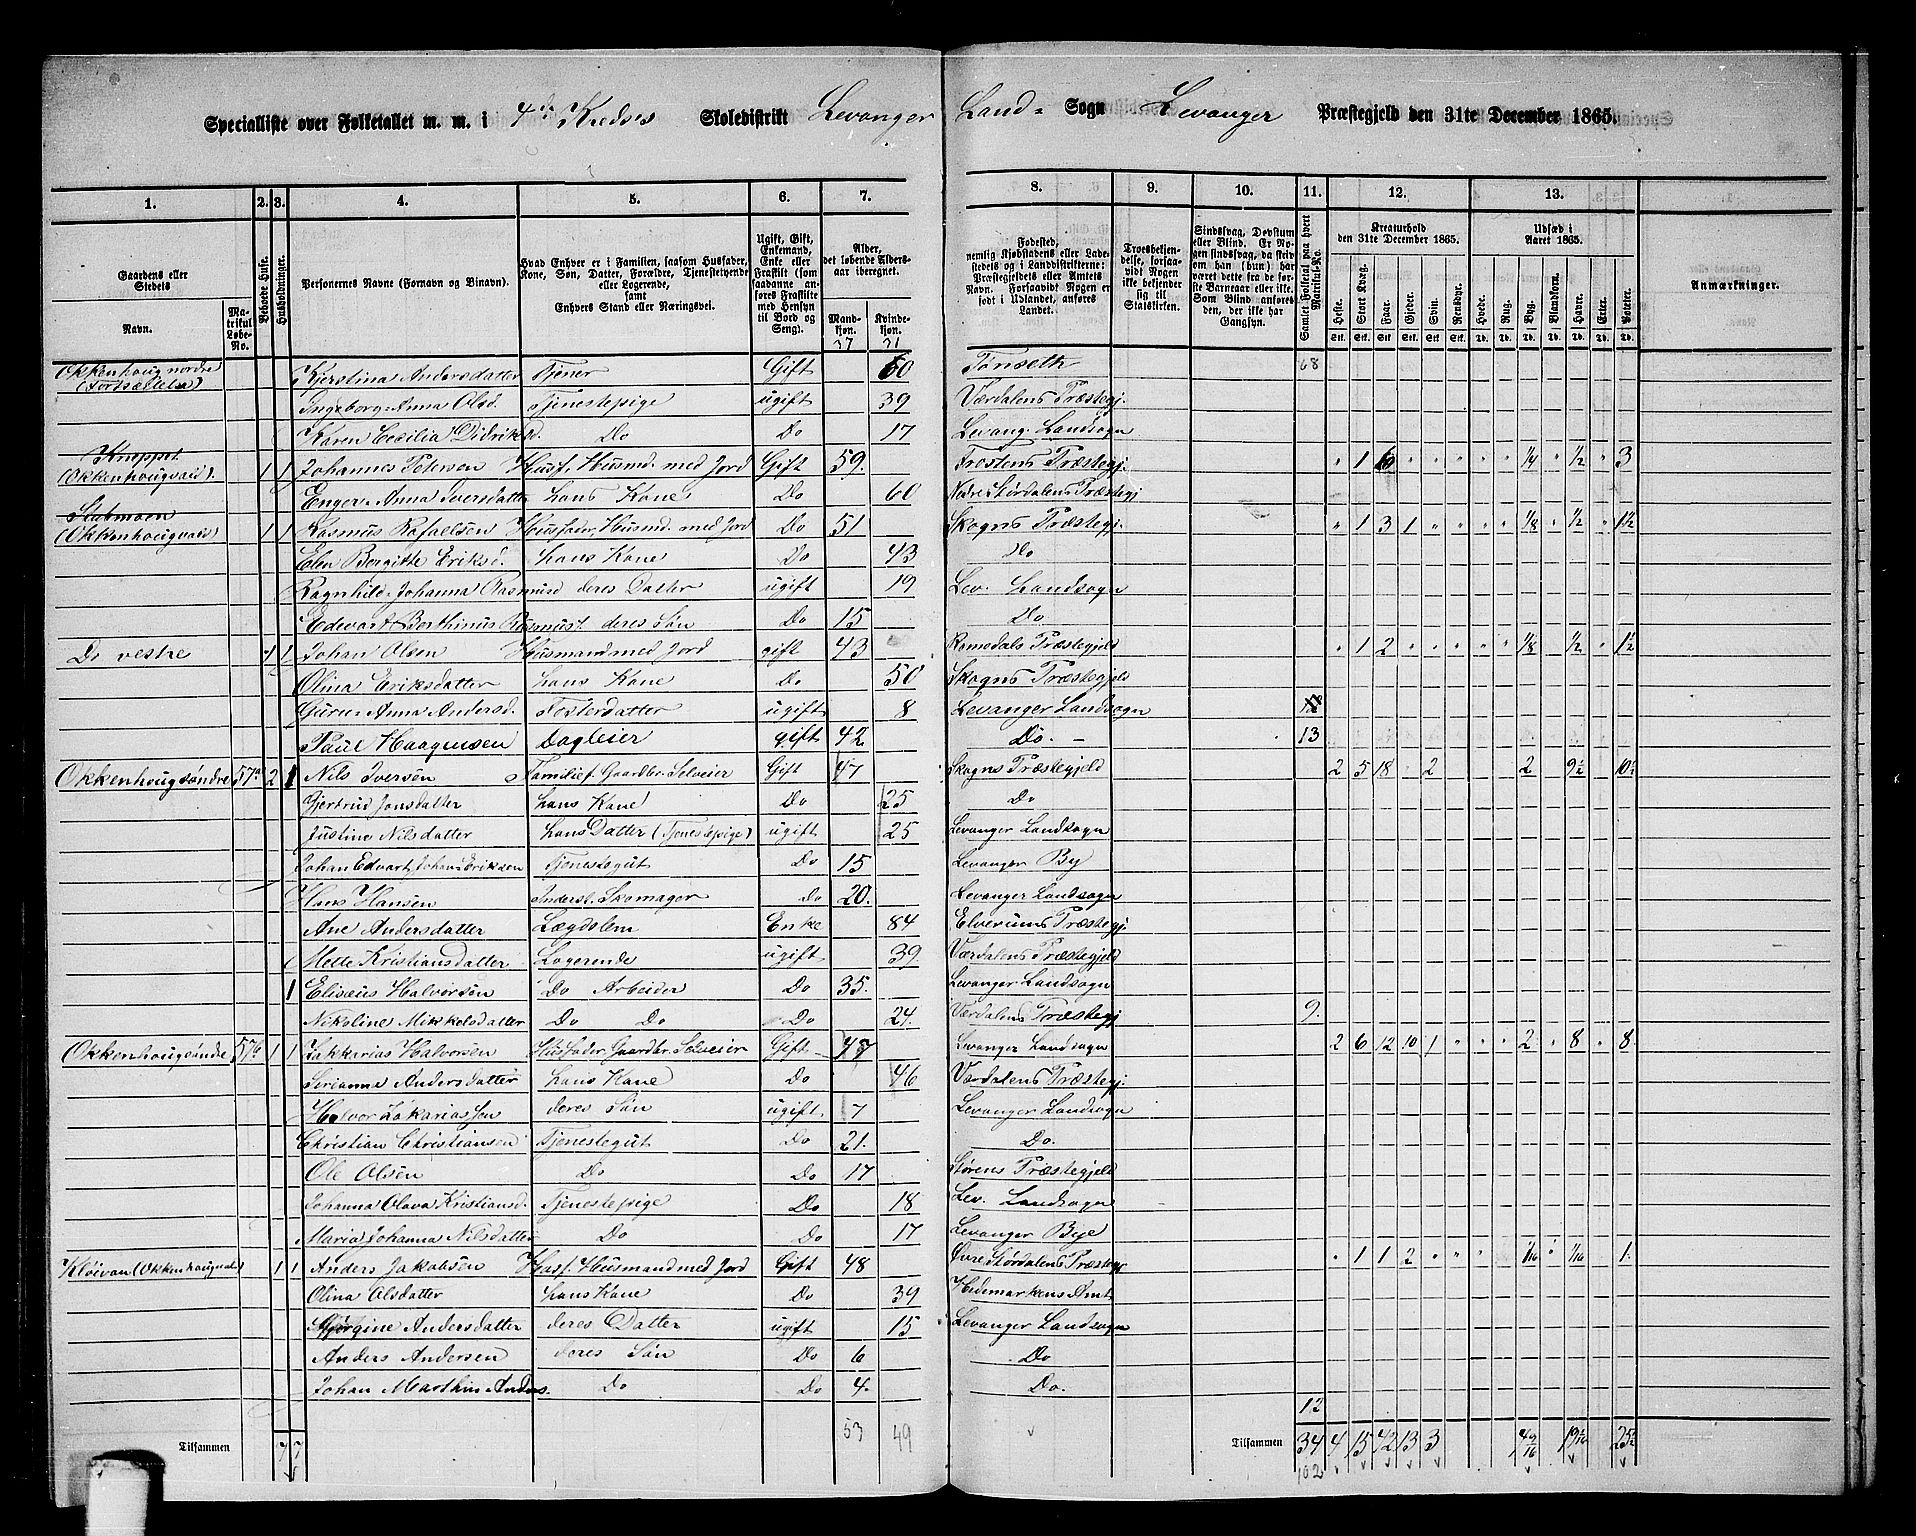 Specialliste over Folketallet m. m. i 4de Kredses Skoledistrikt Levanger Land= Sogn Levanger Præstegjeld den 31te December 1865.
1. 2. 3. 4. 5. 6. 7. 8. 9. 10. 11. 12. 13.
Gaardens eller Stedets Navn. Matrikul Løbe-No. Beboede Huse. Husholdninger. Personernes Navne (Fornavn og Binavn). Hvad Enhver er i Familien, saasom Husfader, Kone, Søn, Datter, Forældre, Tjenestetyende eller Logerende, samt Enhvers Stand eller Næringsvei. Ugift, Gift, Enkemand, Enke eller Fraskilt (saadanne anføres Fraskilte med Hensyn til Bord og Seng). Alder, det løbende Aldersaar iberegnet. Mandkjøn. Kvindekjøn.
Fødested, nemlig Kjøbstadens eller Ladestedets og i Landdistrikterne: Præstegjeldets eller Amtets Navn. Forsaavidt Nogen er født i Udlandet, anføres Landet. Troesbekjendelse, forsaavidt Nogen ikke bekjender sig til Statskirken. Sindssvag, Døvstum eller Blind. Er Nogen sindssvag, da skrives om han (hun) har været dette fra de første Barneaar eller ikke. Som Blind anføres den, der ikke har Gangsyn. Samlet Folketal paa hvert Matrikul-No. Kreaturhold den 31te December 1865. Udsæd i Aaret 1865. Anmærkninger.
Heste. Stort Kvæg. Faar. Gjeder. Svin. Rensdyr. Hvede. Rug. Byg. Blandkorn. Havre. Erter. Poteter.
37 31
Okkenhoug nordre (Fortsættelse) Kjerstina Andersdatter Tjener Gift 60 Tønseth 68
Ingeborg Anna Olsd. Tjenestepige ugift 39 Værdalens Præstegj.
Karen Cecilia Didriksd. Do Do 17 Levang. Landsogn
Kneppet (Okkenhougvald). 1 1 Johannes Petersen Husf. Husmd. med Jord Gift 59. Frostens Præstegj. " 1 6 " " " " " 1/4 " 1/2 " 3
Enger Anna Iversdatter hans Kone Do 60 Nedre Størdalens Præstegj
Stubmoen (Okkenhougvald) 1 1 Rasmus Rafaelsen Husfader, Husmd. med Jord Do 51 Skogns Præstegj. " 1 3 1 " " " " 1/8 " 1/2 " 1 1/2
Elen Bergitte Eriksd. hans Kone Do 43 Do
Ragnhild Johanna Rasmusd deres Datter ugift 19 Lev. Landsogn
Edevart Berthinus Rasmusf. deres Søn Do 15 Do
Do vestre 1 1 Johan Olsen Husmand med Jord gift 43 Romsdals Præstegjeld " 1 2 " " " " " 1/8 " 1/2 " 1 1/2
Olina Eriksdatter hans Kone Do 50 Skogns Præstegjeld
Guru Anna Andersd. Fosterdatter ugift 8 Levanger Landsogn 12
Paul Haagensen Dagleier gift 42 Do. 13
Okkenhoug søndre 57a 2 1 Nils Iversen Familief. Gaardbr. Selveier Gift 47 Skogns Præstegjeld 2 5 18 " 2 2 9 1/2 10 1/2
Gjertrud Jonsdatter hans Kone Do 25 Do
Justine Nilsdatter hans Datter (Tjenestepige) ugift 25 Levanger Landsogn
Johan Edvart Johan Eriksen Tjenestegut Do 15 Levanger By
Hans Hansen Inderst. Skomager Do 20. Levanger Landsogn
Ane Andersdatter Lægdslem Enke 84 Elverums Præstegj
Mette Kristiansdatter Logerende ugift 39 Værdalens Præstegjeld
1 Elisæus Halvorsen Do Arbeider Do 35. Levanger Landsogn
Nikoline Mikkelsdatter Do Do Do 24. Værdalens Præstegj 9.
Okkenhougsøndre 57b 1 1 Zakkarias Halvorsen Husfader Gaardbr. Selveier Gift 47 Levanger Landsogn 2 6 12 10 1 " " " 2 " 8 " 8
Serianna Andersdatter hans Kone Do 46 Værdalens Præstegj.
Halvor Zakariassen deres Søn ugift 7 Levanger Landsogn
Christian Christiansen Tjenestegut Do 21. Do.
Ole Olsen Do Do 17 Størens Præstegjeld
Johanna Olava Kristiansd. Tjenestepige Do 18 Lev. Landsogn
Maria Johanna Nilsdatter Do Do 17 Levanger Bye
Kløivan (Okkenhougvald) 1 1 Anders Jakobsen Husf. Husmand med Jord Gift 48 Øvre Størdalens Præstegj " 1 1 2 " " " 1/16 " 1/16 1.
Olina Olsdatter hans Kone Do 39 Hedemarkens Amt
Jørgine Andersdatter deres Datter ugift 15 Levanger Landsogn
Anders Andersen deres Søn Do 6 Do
Johan Marthin Anders. Do Do 4. Do.
12
Tilsammen 7 7 53 49 Tilsammen 34 4 15 42 13 3 4 9/16 19 9/16 25 1/2
102